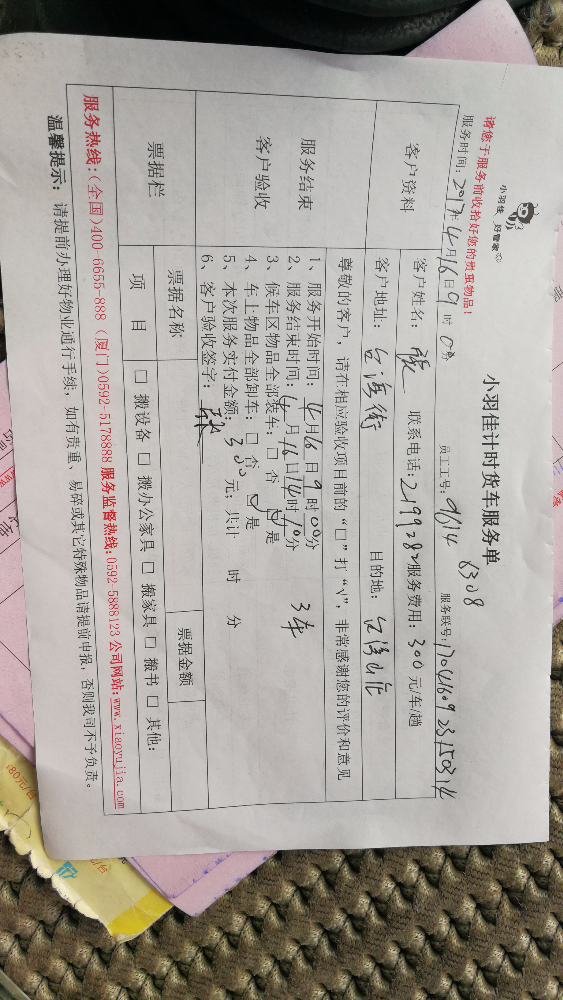 小羽佳 好管家
小羽佳计时货车服务单
6308
请您于服务前收拾好您的贵重物品！
服务时间：2017年4月16日9时0分 员工工号：9614 服务联号：
客户资料
客户姓名： 联系电话：2199282 服务费用：300元/车/趟
客户地址： 台湾街 目的地：
尊敬的客户，请在相应验收项目前的“□”打“√”，非常感谢您的评价和意见
服务结束
客户验收
1、服务开始时间：4月16日9时00分
2、服务结束时间：4月16日14时10分 3车
3、候车区物品全部装车：□ 否 ☑ 是
4、车上物品全部卸车：□ 否 ☑ 是
5、本次服务实付金额：300元；共计 时 分
6、客户验收签字：
票据栏
票据名称 票据金额
项 目 □ 搬设备 □ 搬办公家具 □ 搬家具 □ 搬书 □ 其他：
服务热线：（全国）400-6655-888（厦门）0592-5178888 服务监督热线：0592-5888123 公司网站：www.xiaoyujia.com
温馨提示：请提前办理好物业通行手续，如有贵重、易碎或其它特殊物品请提前申报，否则我司不予负责。